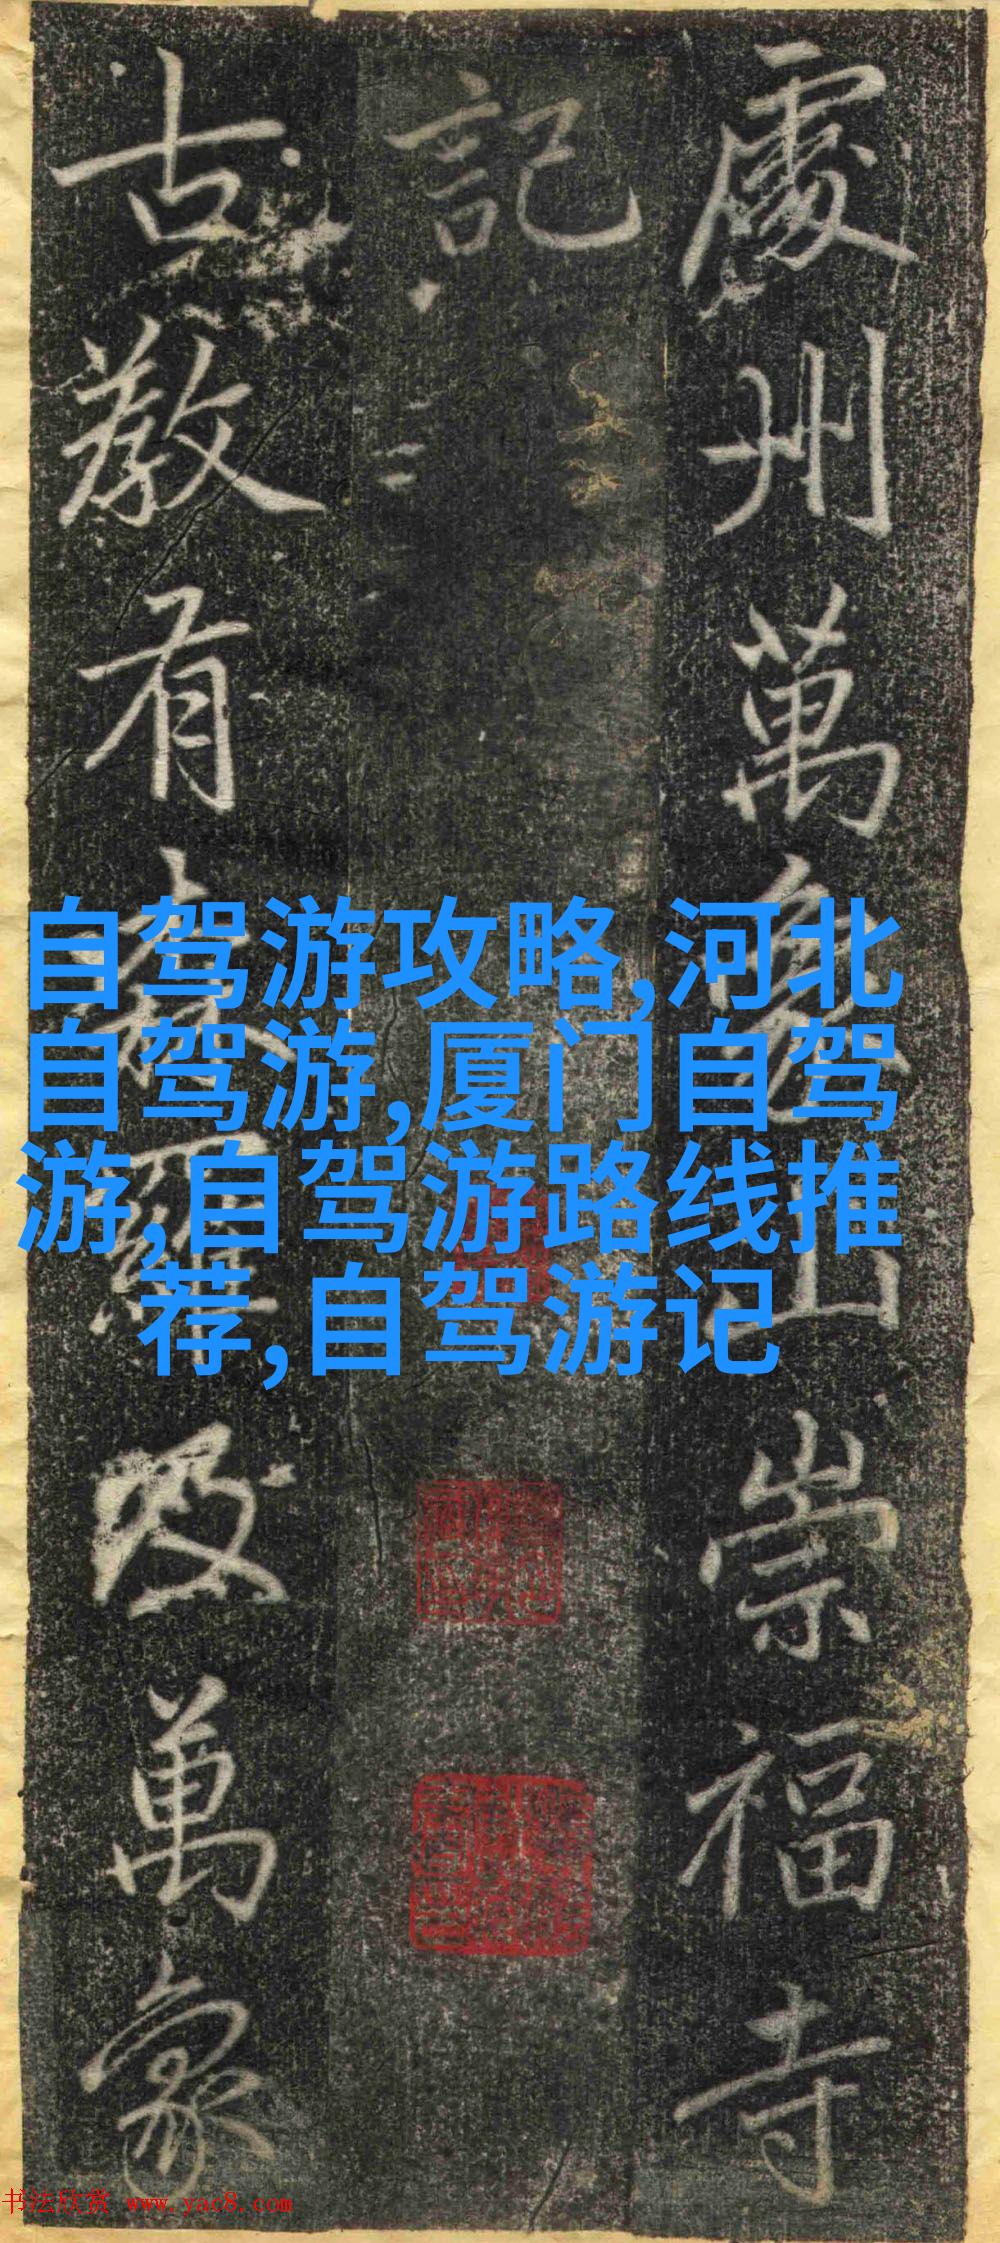 處州萬象山崇福寺
記
古教有森羅及萬象
自驾游攻略,河北
自驾游,厦门自驾
游,自驾游路线推
荐,自驾游记
书法欣赏 www.yac8.com